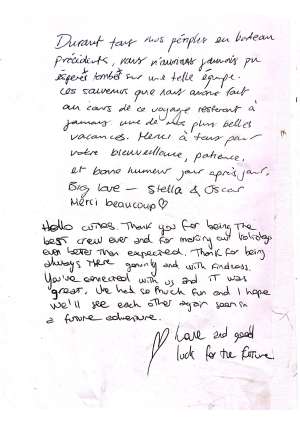 Durant tous nos périples en bateau
précédents, nous n'aurions jamais pu
espérer tomber sur une telle équipe.
Les souvenirs que nous avons fait
au cours de ce voyage resteront à
jamais une de nos plus belles
vacances. Merci à tous pour
votre bienveillance, patience,
et bonne humeur jour après jour.
Big love — Stella & Oscar
Merci beaucoup ♡
Hello cuties. Thank you for being the
best crew ever and for making our holidays
even better than expected. Thank for being
always there and with kindness.
You've connected with us and it was
great. We had so much fun and I hope
we'll see each other again soon in
a future adventure.
Love and good
luck for the future